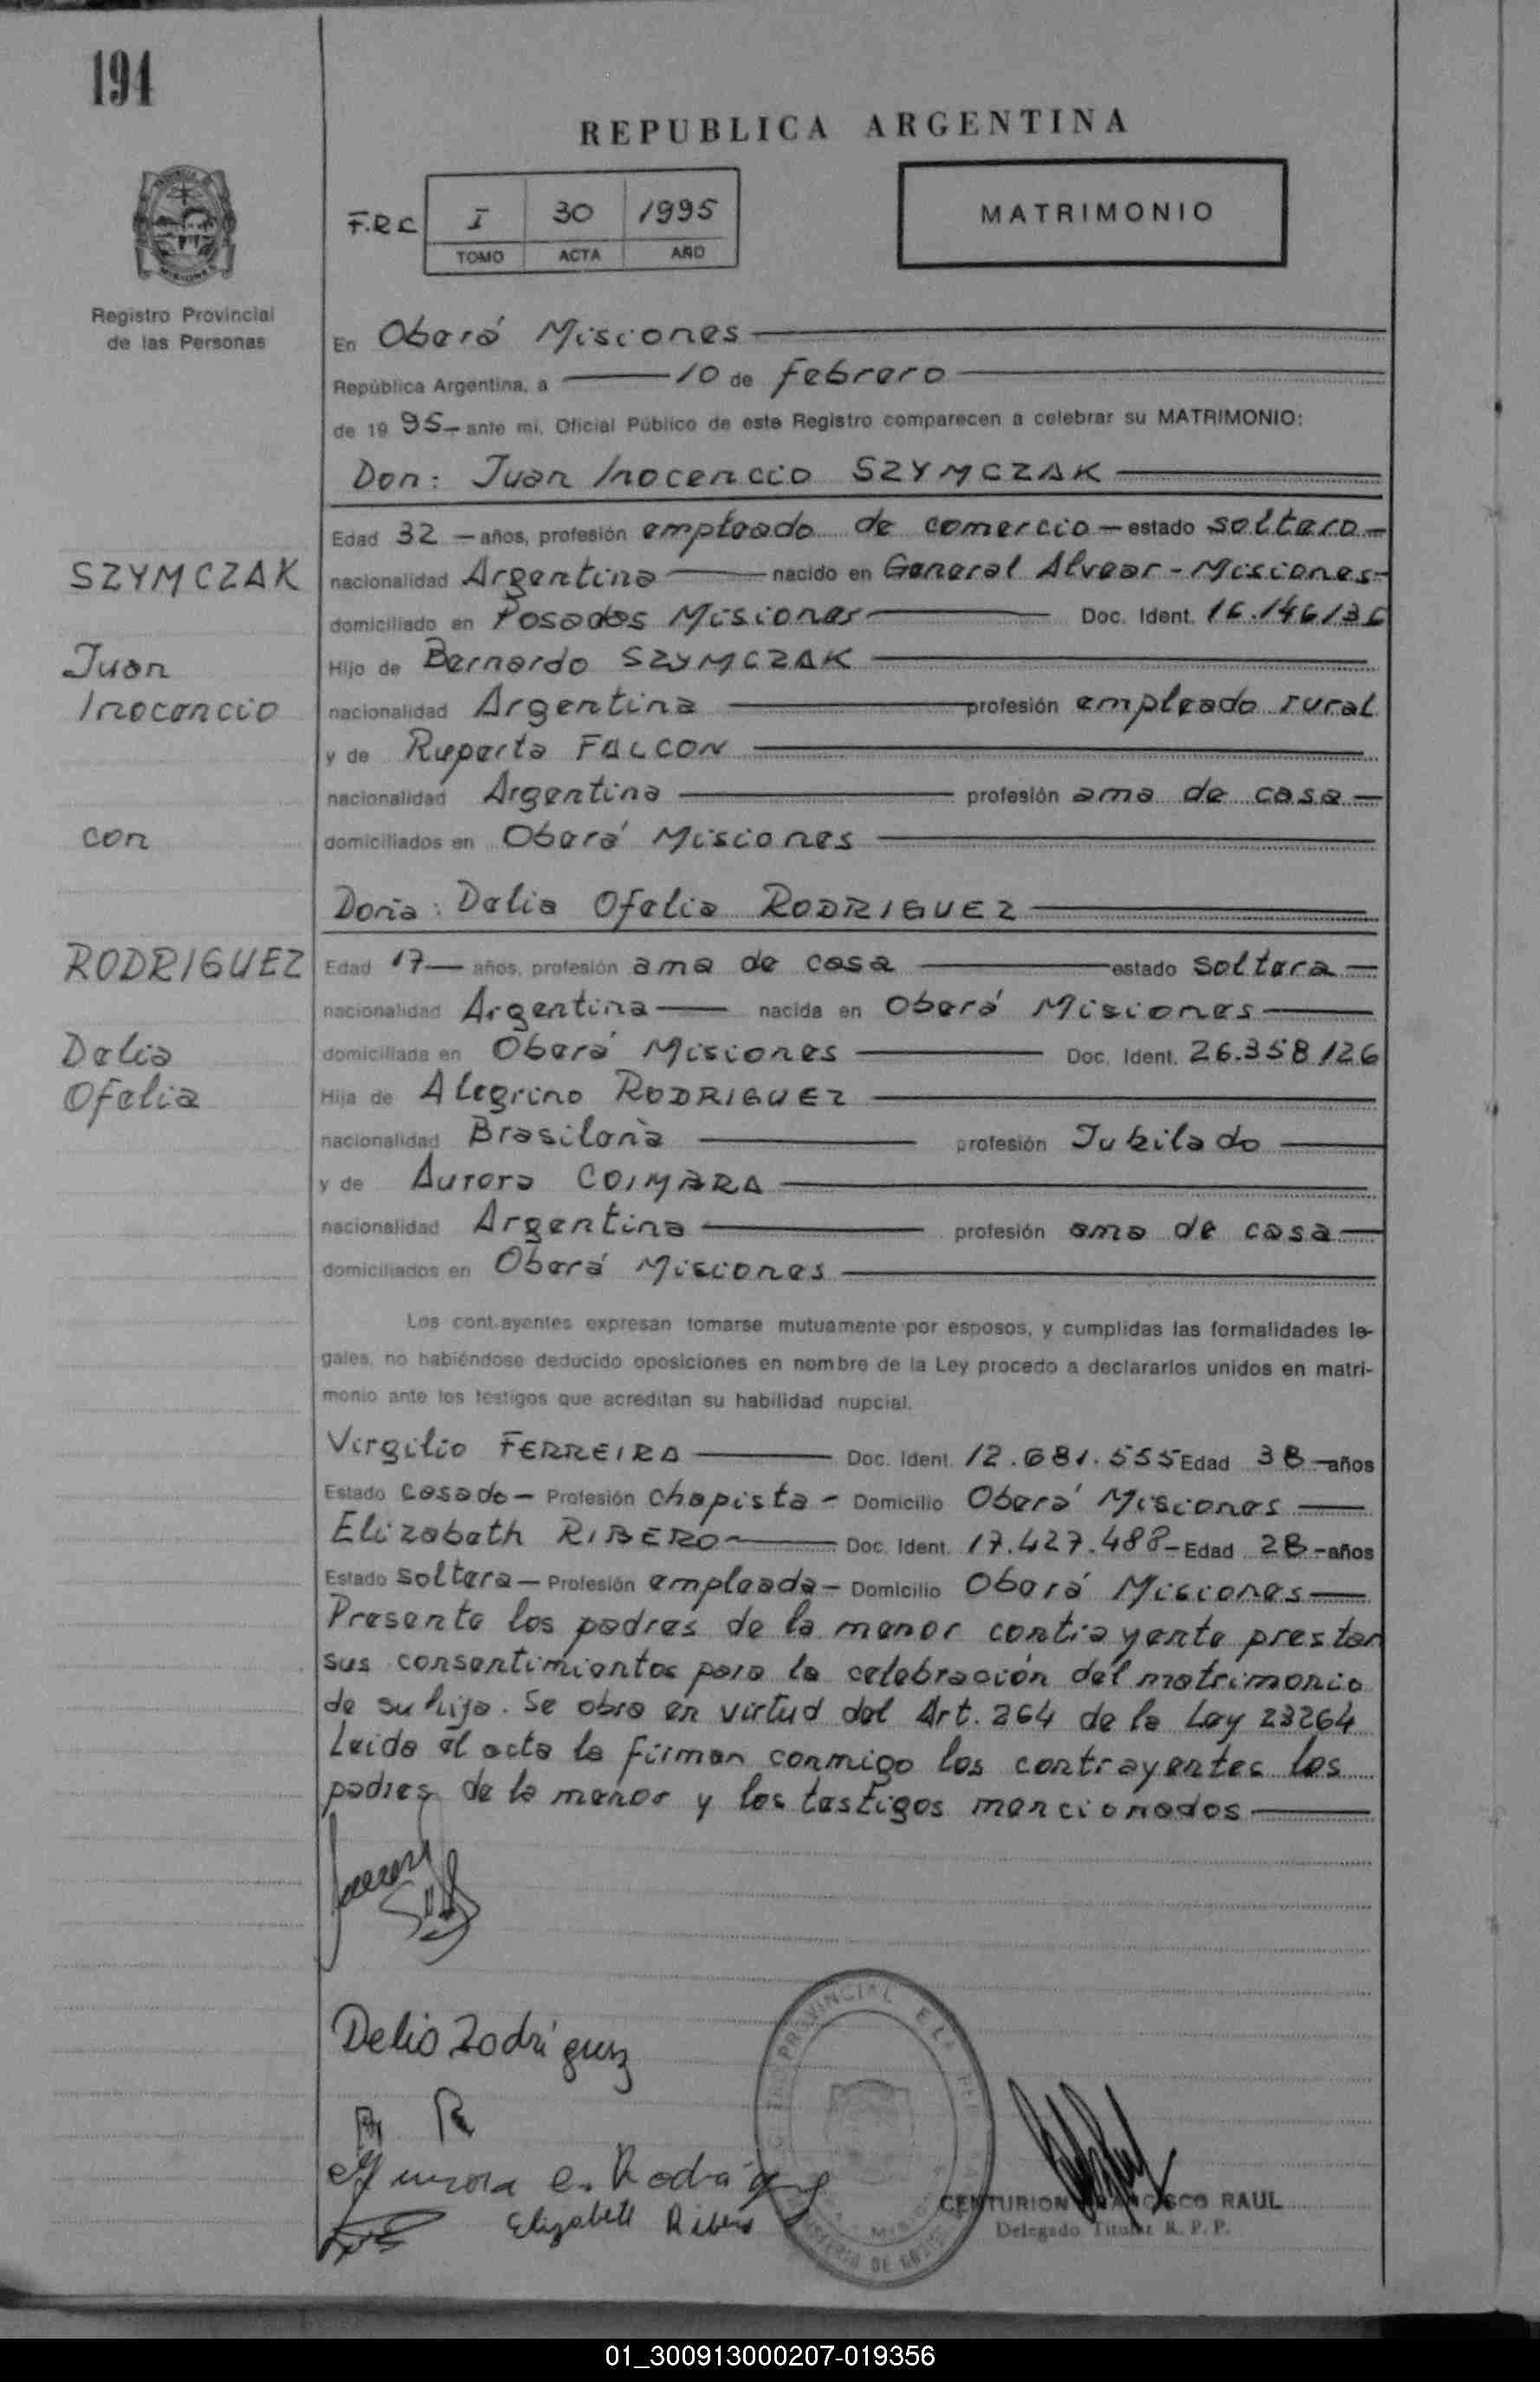 194
REPUBLICA ARGENTINA
F.R.C I 30 1995
TOMO ACTA AÑO
MATRIMONIO
Registro Provincial
de las Personas
En Oberá Misiones
República Argentina, a 10 de febrero
de 1995 ante mi, Oficial Público de este Registro comparecen a celebrar su MATRIMONIO:
Don: Juan Inocencio SZYMCZAK
Edad 32 años, profesión empleado de comercio estado soltero
SZYMCZAK
nacionalidad Argentina nacido en General Alvear - Misiones
domiciliado en Posadas Misiones Doc. Ident. 16.146136
Juan
Hijo de Bernardo SZYMCZAK
Inocencio
nacionalidad Argentina profesión empleado rural
y de Ruperta FALCON
nacionalidad Argentina profesión ama de casa
con
domiciliados en Oberá Misiones
Doña: Delia Ofelia RODRIGUEZ
RODRIGUEZ
Edad 17 años, profesión ama de casa estado soltera
nacionalidad Argentina nacida en Oberá Misiones
Delia
domiciliada en Oberá Misiones Doc. Ident. 26.358126
Ofelia
Hija de Alegrino RODRIGUEZ
nacionalidad Brasileña profesión Jubilado
y de Aurora COIMBRA
nacionalidad Argentina profesión ama de casa
domiciliados en Oberá Misiones
Los contrayentes expresan tomarse mutuamente por esposos, y cumplidas las formalidades le-
gales, no habiéndose deducido oposiciones en nombre de la Ley procedo a declararlos unidos en matri-
monio ante los testigos que acreditan su habilidad nupcial.
Virgilio FERREIRA Doc. Ident. 12.681.555 Edad 38 años
Estado casado - Profesión chapista - Domicilio Oberá Misiones
Elizabeth RIBERO Doc. Ident. 17.427.488 - Edad 28 - años
Estado soltera - Profesión empleada - Domicilio Oberá Misiones
Presente los padres de la menor contrayente prestan
sus consentimientos para la celebración del matrimonio
de su hija. Se obra en virtud del Art. 264 de la Ley 23264
Leida el acta la firman conmigo los contrayentes los
padres de la menor y los testigos mencionados
Delia Rodriguez
A R
Aurora C. Rodriguez
Elizabeth Ribero
CENTURION FRANCISCO RAUL
Delegado Titular R. P. P.
01_300913000207-019356